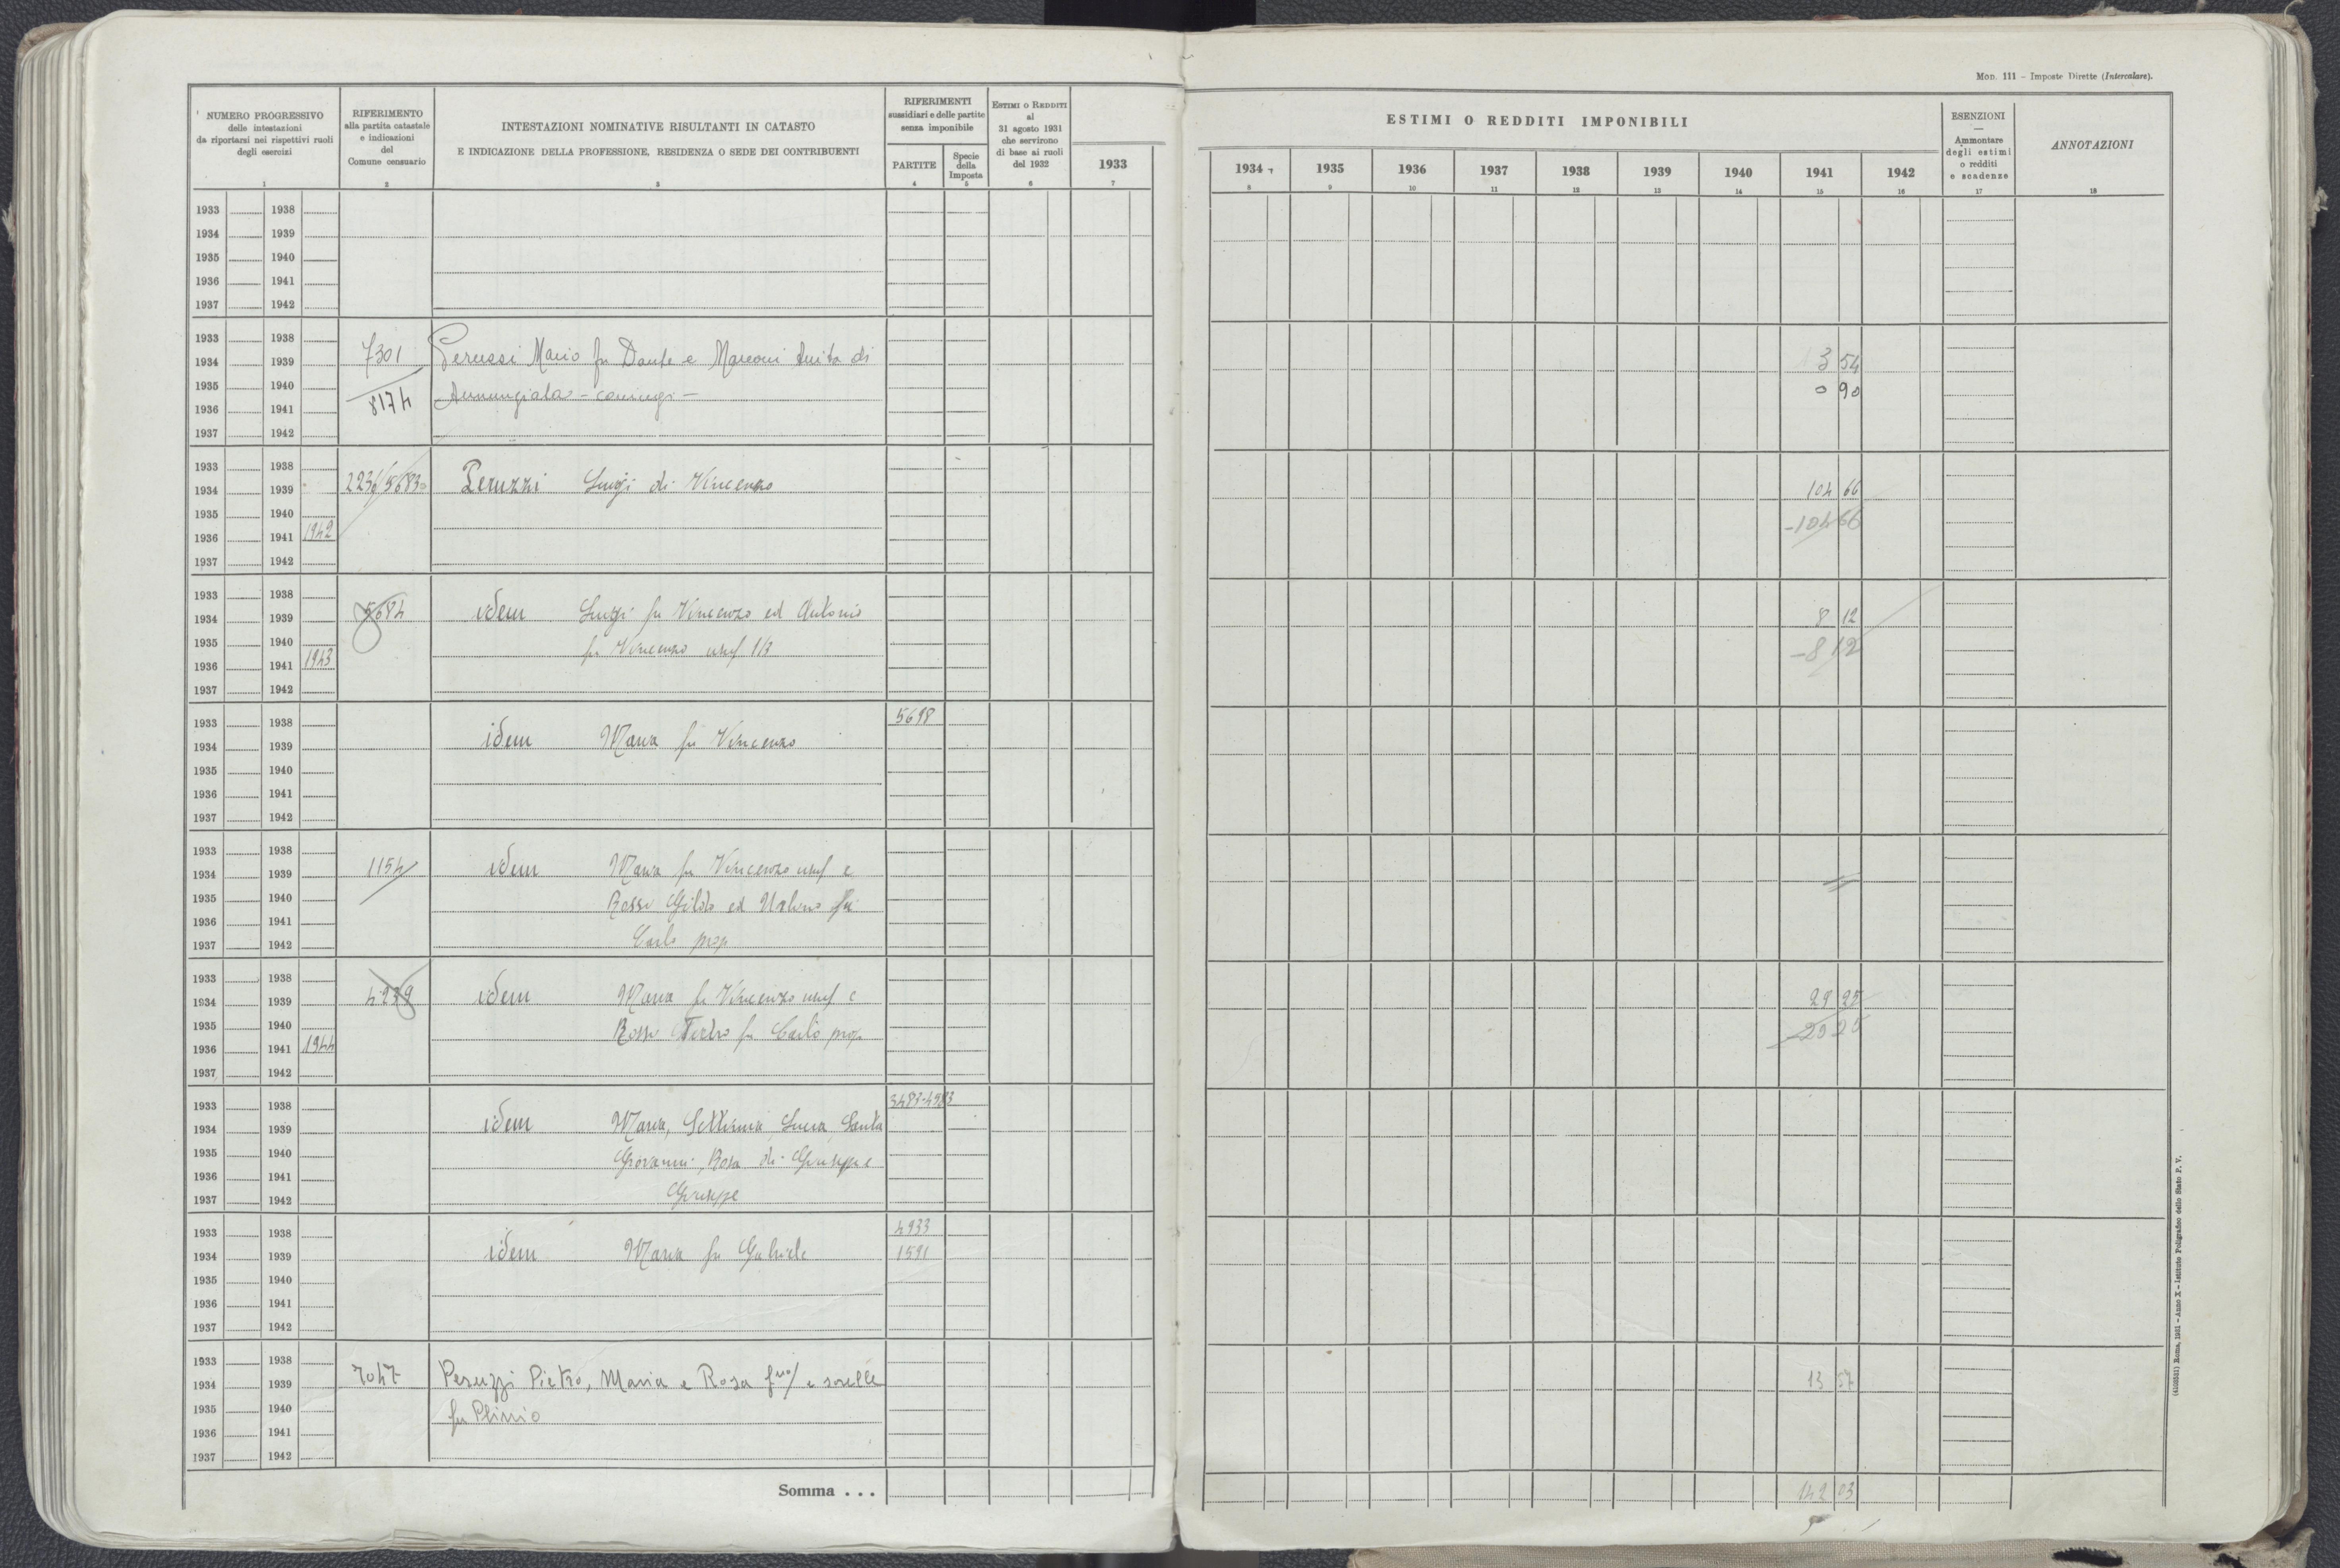 Mod. 111 – Imposte Dirette (Intercalare).
NUMERO PROGRESSIVO
delle intestazioni
da riportarsi nei rispettivi ruoli
degli esercizi
1
RIFERIMENTO
alla partita catastale
e indicazioni
del
Comune censuario
2
INTESTAZIONI NOMINATIVE RISULTANTI IN CATASTO
E INDICAZIONE DELLA PROFESSIONE, RESIDENZA O SEDE DEI CONTRIBUENTI
3
RIFERIMENTI
sussidiari e delle partite
senza imponibile
PARTITE
4
Specie
della
Imposta
5
ESTIMI O REDDITI
al
31 agosto 1931
che servirono
di base ai ruoli
del 1932
6
1933
7
ESTIMI O REDDITI IMPONIBILI
1934 1935 1936 1937 1938 1939 1940 1941 1942
8 9 10 11 12 13 14 15 16
ESENZIONI
—
Ammontare
degli estimi
o redditi
e scadenze
17
ANNOTAZIONI
18
1933 1938
1934 1939
1935 1940
1936 1941
1937 1942
1933 1938
7301 Perussi Mario fu Dante e Marconi Anita di 3 54
1934 1939
1935 1940
8174 Annunziata - coniugi - 0 90
1936 1941
1937 1942
1933 1938
1934 1939 2236/5683 Peruzzi Luigi di Vincenzo 104 66
1935 1940
1936 1941 1942 -104 66
1937 1942
1933 1938
1934 1939 5684 idem Luigi fu Vincenzo ed Antonio 8 12
1935 1940 fu Vincenzo usuf 1/3 -8 12
1936 1941 1943
1937 1942
1933 1938 5698
1934 1939 idem Maria fu Vincenzo
1935 1940
1936 1941
1937 1942
1933 1938
1934 1939 1154 idem Maria fu Vincenzo usuf e
1935 1940 Rossi Gildo ed Urbino fu
1936 1941
1937 1942 Carlo prop
1933 1938
1934 1939 4239 idem Maria fu Vincenzo usuf e 29 25
1935 1940 Rossi fu Carlo prop
1936 1941 1944
1937 1942
1933 1938
1934 1939 idem Maria, Settimia, Lucia, Santa
1935 1940 Giovanni, Rosa di Giuseppe e
1936 1941
1937 1942 Giuseppe
1933 1938 4933
1934 1939 idem Maria fu Gabriele 1591
1935 1940
1936 1941
1937 1942
1933 1938
1934 1939 7047 Peruzzi Pietro, Maria e Rosa e sorelle 13 57
1935 1940 fu Plinio
1936 1941
1937 1942
Somma . . . 142 03
(4100331) Roma, 1931 – Anno X – Istituto Poligrafico dello Stato P. V.